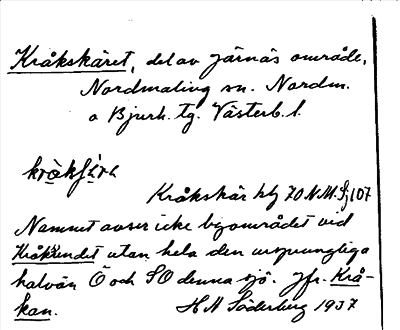 Kråkskäret, del av Järnäs område,
Nordmaling sn. Nordm.
o Bjurh. tg. Västerb. l.
Kråkskär hlg 70 N.M. Sj 107
Namnet avser icke byområdet vid
Kråksundet utan hela den ursprungliga
halvön Ö och SO denna sjö. Jfr. Krå-
kan. H A Söderberg 1937